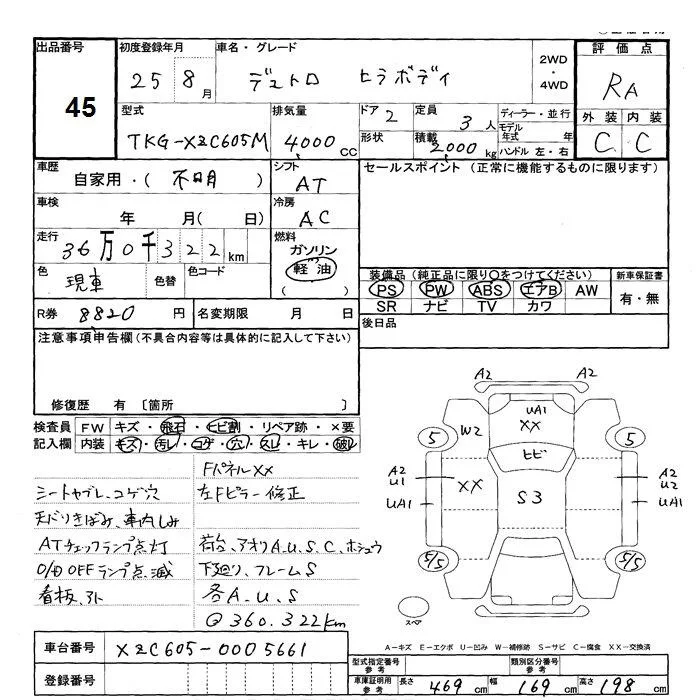 出品番号
45
初度登録年月
25 8月
車名・グレード
デュトロ ヒラボディ
2WD
・
4WD
評価点
RA
外装 内装
C C
型式
TKG-XZC605M
排気量
4000cc
ドア 2
形状
定員 3人
積載 2000kg
ディーラー・並行
モデル年式 年
ハンドル 左・右
車歴
自家用・(不明)
シフト
AT
セールスポイント (正常に機能するものに限ります)
車検
年 月(日)
冷房
AC
走行
36万0千322km
燃料
ガソリン
軽油
( )
色
現車
色替
色コード
装備品 (純正品に限り〇をつけてください)
PS PW ABS エアB AW
SR ナビ TV カワ
新車保証書
有・無
R券 8820円
名変期限 月 日
後日品
注意事項申告欄(不具合内容等は具体的に記入して下さい)
修復歴 有 〔箇所 〕
検査員 FW キズ・飛石・ヒビ割・リペア跡・×要
記入欄 内装 キズ・汚レ・コゲ・穴・スレ・キレ・破レ
シートヤブレ、コゲ穴
天バリきばみ、車内しみ
ATチェックランプ点灯
O/D OFFランプ点滅
看板、アト
FパネルXX
左Fピラー修正
荷台、アオリA.U.S.C.ホシュウ
下廻り、フレームS
各A.U.S
@360.322km
A2 A2
UA1
XX
W2
ヒビ
5 5
A2
U1
UA1
XX
S3
A2
U2
UA1
5/5 5/5
スペア
A－キズ E－エクボ U－凹み W－補修跡 S－サビ C－腐食 XX－交換済
車台番号 XZC605-0005661
登録番号
型式指定番号
参考
類別区分番号
参考
車庫証明用
参考
長さ 469cm 幅 169cm 高さ 198cm